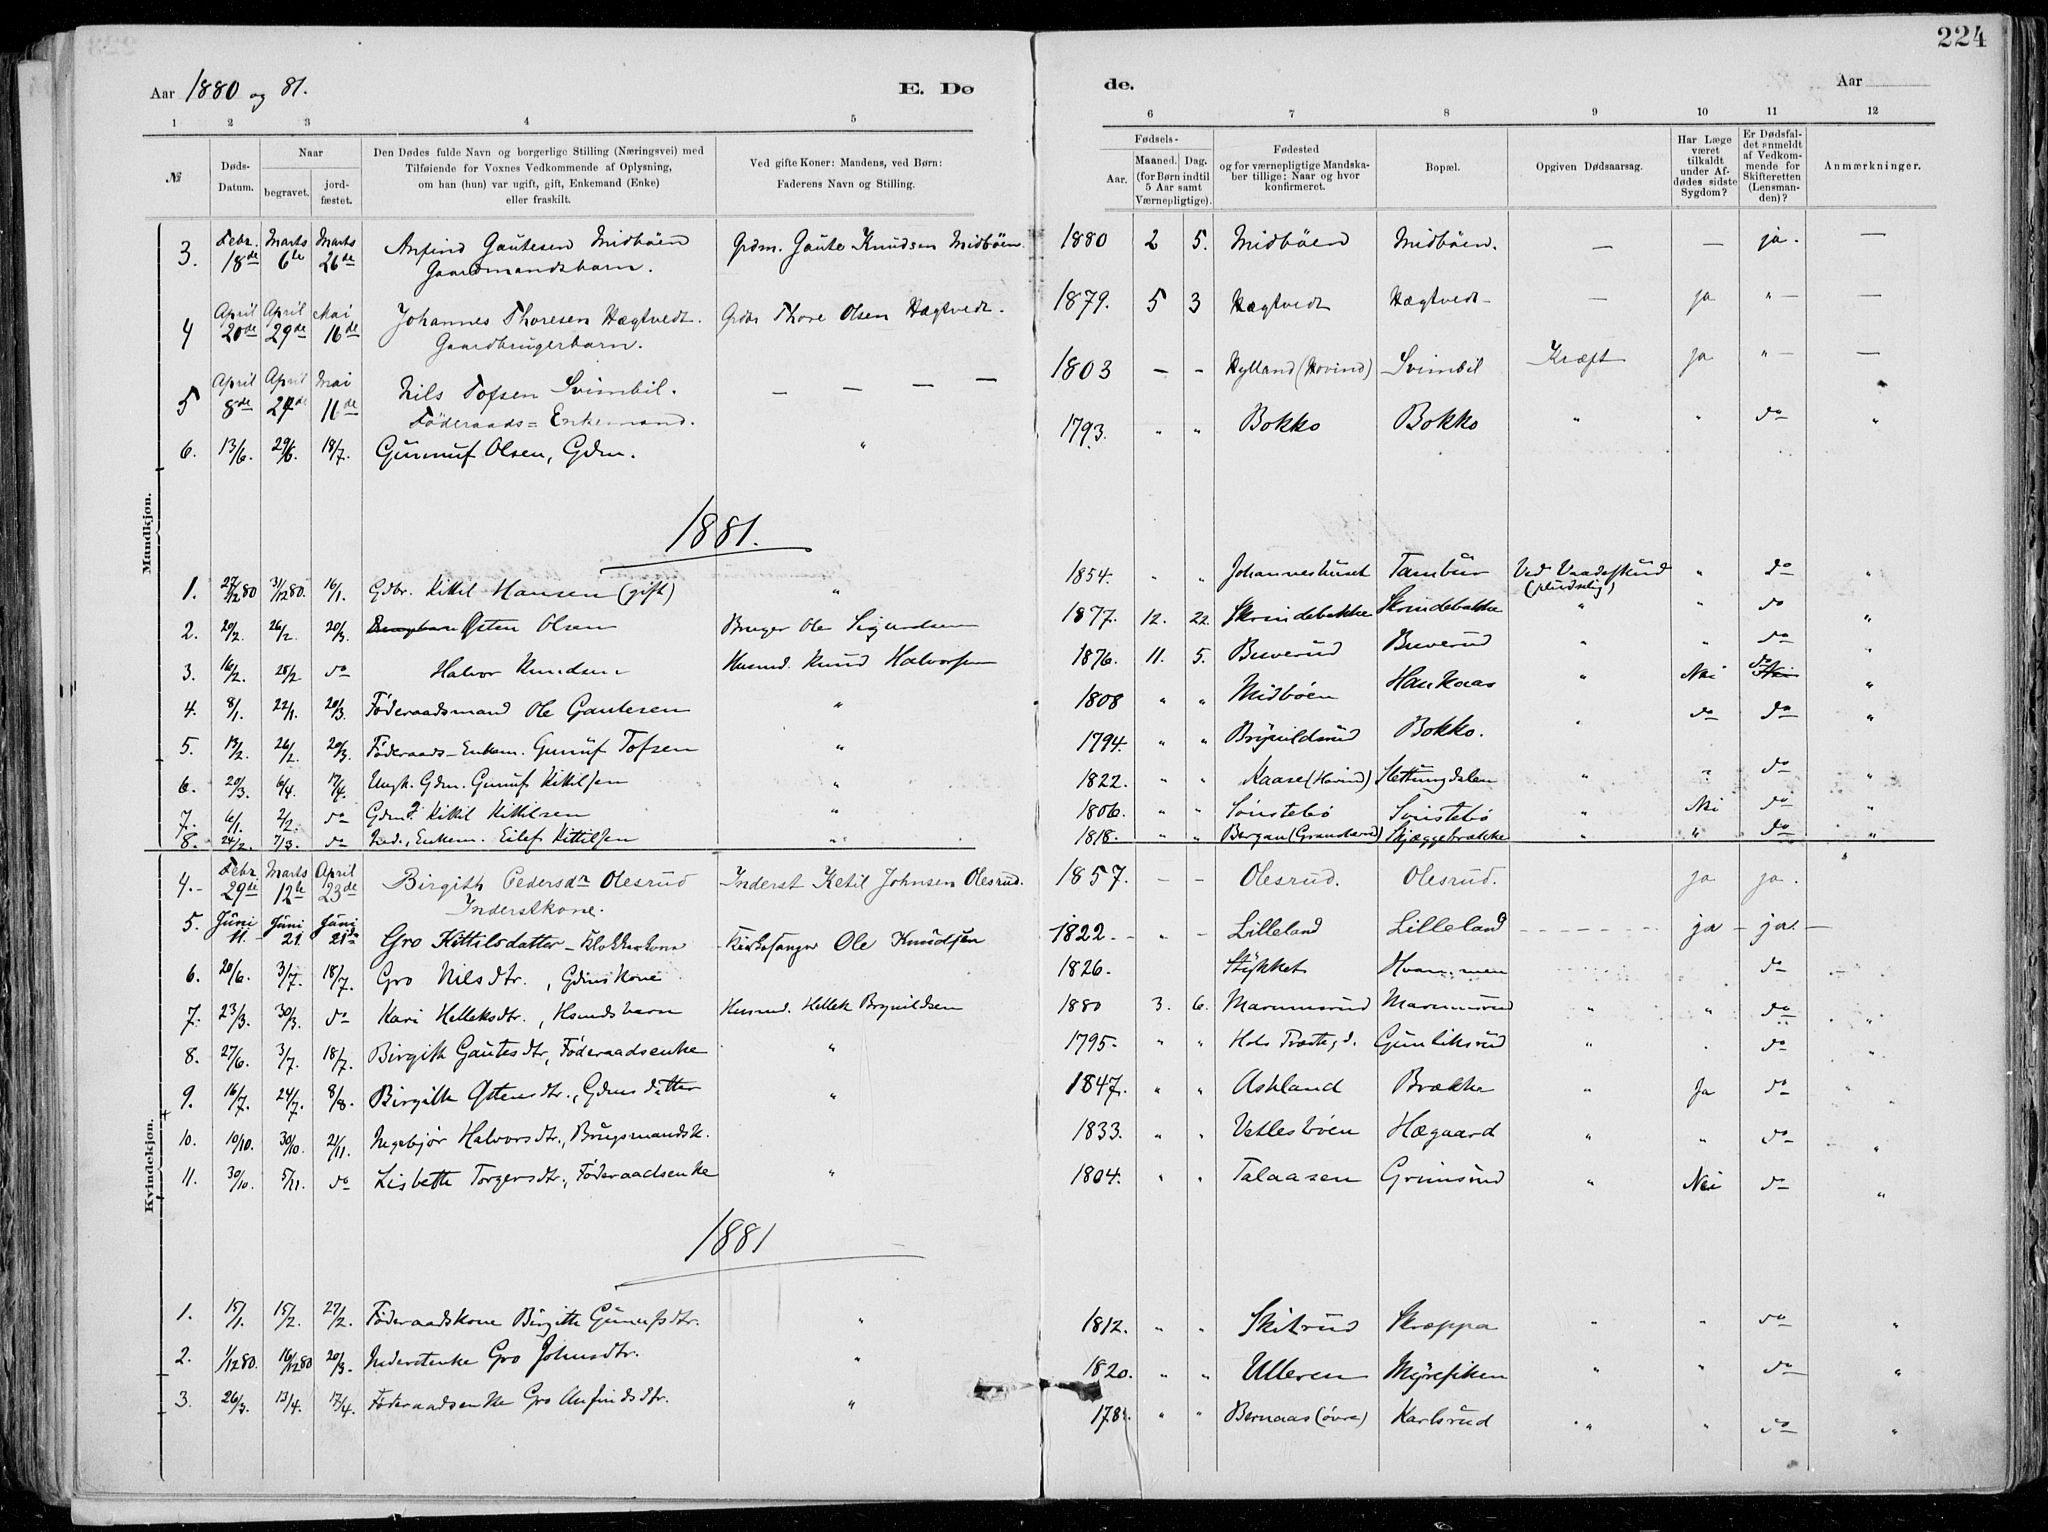 224
Aar 1880 og 81.
E. Dø
de.
Aar
1 2 3 4 5 6 7 8 9 10 11 12
№
Døds-
Datum.
Naar
begravet.
jord-
fæstet.
Den Dødes fulde Navn og borgerlige Stilling (Næringsvei) med
Tilføiende for Voxnes Vedkommende af Oplysning,
om han (hun) var ugift, gift, Enkemand (Enke)
eller fraskilt.
Ved gifte Koner: Mandens, ved Børn:
Faderens Navn og Stilling.
Fødsels-
Aar.
Maaned. Dag.
(for Børn indtil
5 Aar samt
Værnepligtige).
Fødested
og for værnepligtige Mandska-
ber tillige: Naar og hvor
konfirmeret.
Bopæl.
Opgiven Dødsaarsag.
Har Læge
været
tilkaldt
under Af-
dødes sidste
Sygdom?
Er Dødsfal-
det anmeldt
af Vedkom-
mende for
Skifteretten
(Lensman-
den)?
Anmærkninger.
Mandkjøn.
3. Febr. 18de Marts 6te Marts 26de Anfind Gautesen Midbøen Grdm. Gaute Knudsen Midbøen 1880 2 5. Midbøen Midbøen. — — ja. —
Gaardmandsbarn.
4 April 20de April 29de Mai 16de Johannes Thoresen Hægtvedt. Grdbr Thore Olsen Hægtvedt. 1879. 5 3 Hægtvedt Hægtvedt — ja " — —
Gaardbrugerbarn.
5 April 8de April 24de Mai 11de Nils Tofsen Svimbil. — — — — 1803 — — Hylland (Hovind) Svimbil Kræft ja " — —
Föderaads= Enkemand.
6. 13/6. 29/6. 18/7. Gunnuf Olsen, Gdm. " 1793. " " Bokko Bokko " " do "
1881.
1. 27/12 80 31/12 80. 16/1. Gdbr. Kittil Hansen (gift) " 1854. " " Johanneshuset Tambur Ved Vaadeskud " do "
(pludselig)
2. 20/2. 26/2. 20/3. Østen Olsen Bruger Ole Sigurdsen 1877. 12. 22. Skrindebakke Skrindebakke " " do "
3. 16/2. 25/2 do Halvor Knudsen Husmd. Knud Halvorsen 1876. 11. 5. Buverud Buverud " " do "
4. 8/1. 22/1. 20/3. Föderaadsmand Ole Gautesen " 1808 " " Midbøen Haukaas " Nei do "
5. 13/2. 26/2. 20/3. Föderaads-Enkem. Gunuf Tofsen " 1794. " " Brynildsrud Bokko. " do do "
6. 20/3. 6/4. 17/4. Ungk. Gdm. Gunuf Kittilsen " 1822. " " Kaase (Hovind) Slettungdalen " ? do "
7. 6/1. 2/2. do Gdm. Kittil Kittilsen " 1806. " " Sønstebø Sønstebø " Nei do "
8. 24/2. 7/3. do Ind., Enkem. Eilef Kittilsen " 1818. " " Bergan (Gransherad) Skjæggebrække " " do "
Kvindekjøn.
4. Febr. 29de Marts 12te April 23de Birgith Pedersdr Olesrud Inderst Ketil Johnsen Olesrud. 1857. — — Olesrud. Olesrud. ja ja. "
Inderstkone.
5. Juni 11. Juni 21. Juni 21de Gro Kittilsdatter – Klokkerkone Kirkesanger Ole Knudsen 1822. — " — Lilleland Lilleland ja — ja. —
6. 20/6. 3/7. 18/7. Gro Nilsdtr., Gdmskone 1826. Stykket do
7. 23/3. 30/3. do Kari Helleksdtr., Hsmdsbarn Husmd. Hellek Brynildsen 1880 3. 6. Marumsrud Marumsrud " " do "
8. 27/6. 3/7. 18/7. Birgith Gautesdtr, Föderaadsenke " 1795. " " Gunliksrud " . do "
9. 16/7. 24/7. 8/8. Birgith Østensdtr., Gdmsdatter " 1847. " " Askland Brække " Ja do "
10. 10/10. 30/10. 21/11. Ingebjør Halvorsdtr., Brugsmandsk. 1833. " " Vetlesbøen Hægaard " " do "
11. 30/10. 5/11. do Lisbeth Torgersdtr., Föderaadsenke " 1804. " " Talaasen Grimsrud " Nei do "
1881
1. 15/1. 15/2. 27/2. Föderaadskone Birgitte Gunufsdtr. " 1812. " " Skitrud Skræppa " " do "
2. 1/12 80. 16/12 80 20/3. Inderstenke Gro Johnsdtr. " 1820. " " Ulleren Myrestken " " do "
3. 26/3. 13/4. 17/4. Föderaadsenke Gro Anfindsdtr. " 178 " " Bernaas (övre) Karlsrud " " do "